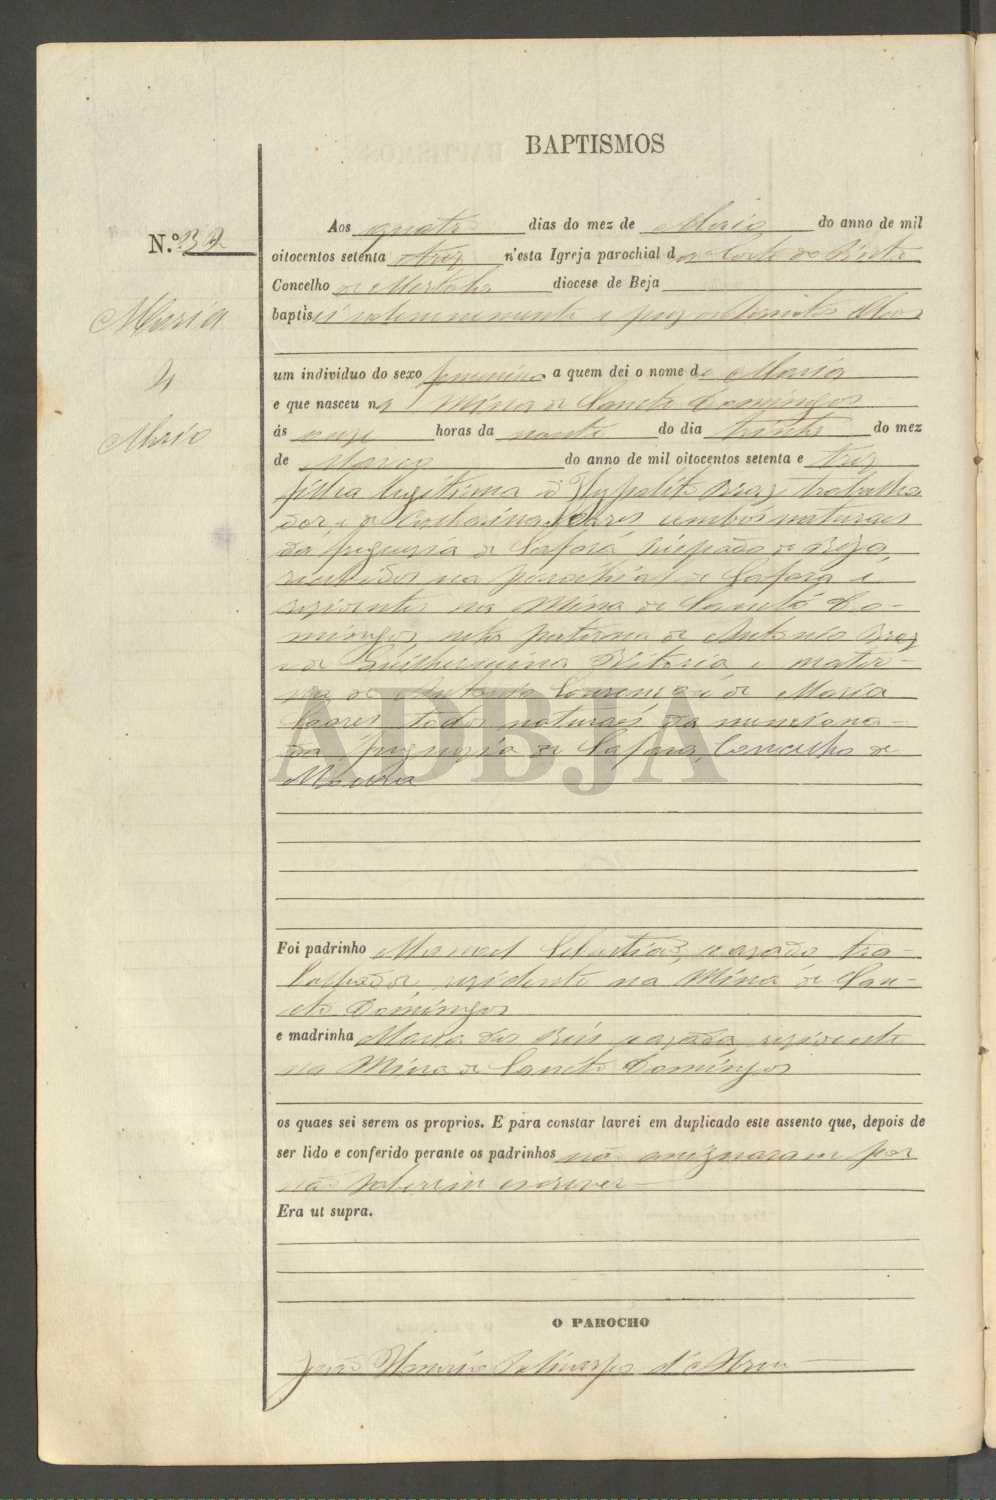 BAPTISMOS
N.º 32
Maria
4
Maio
Aos quatro dias do mez de Maio do anno de mil
oitocentos setenta e trez n'esta Igreja parochial da Corte do Pinto
Concelho de Mertola diocese de Beja
baptisei solemnemente e puz os Santos Oleos
um individuo do sexo femenino a quem dei o nome de Maria
e que nasceu na Mina de Sancto Domingos
ás onze horas da noute do dia trinta do mez
de Março do anno de mil oitocentos setenta e trez
filha legitima de Hypolito Braz, trabalha
dor, e de Catharina, ambos naturaes
da freguesia de Safara Bispado de Beja
na parochia de Safara e
residentes na Mina de Sancto Do-
mingos, neta paterna de Antonio Braz
e de Guilhermina Vitoria e mater-
na de Antonio Lourenço e de Maria
Soares todos naturaes da menciona-
da freguesia de Safara, Concelho de
Moura
Foi padrinho Manoel Sebastião, casado tra-
balhador, residente na Mina de San-
cto Domingos
e madrinha Maria dos Reis casada, residente
na Mina de Sancto Domingos
os quaes sei serem os proprios. E para constar lavrei em duplicado este assento que, depois de
ser lido e conferido perante os padrinhos não assignaram por
não saberem escrever
Era ut supra.
O PAROCHO
João d'Abreu
ADBJA